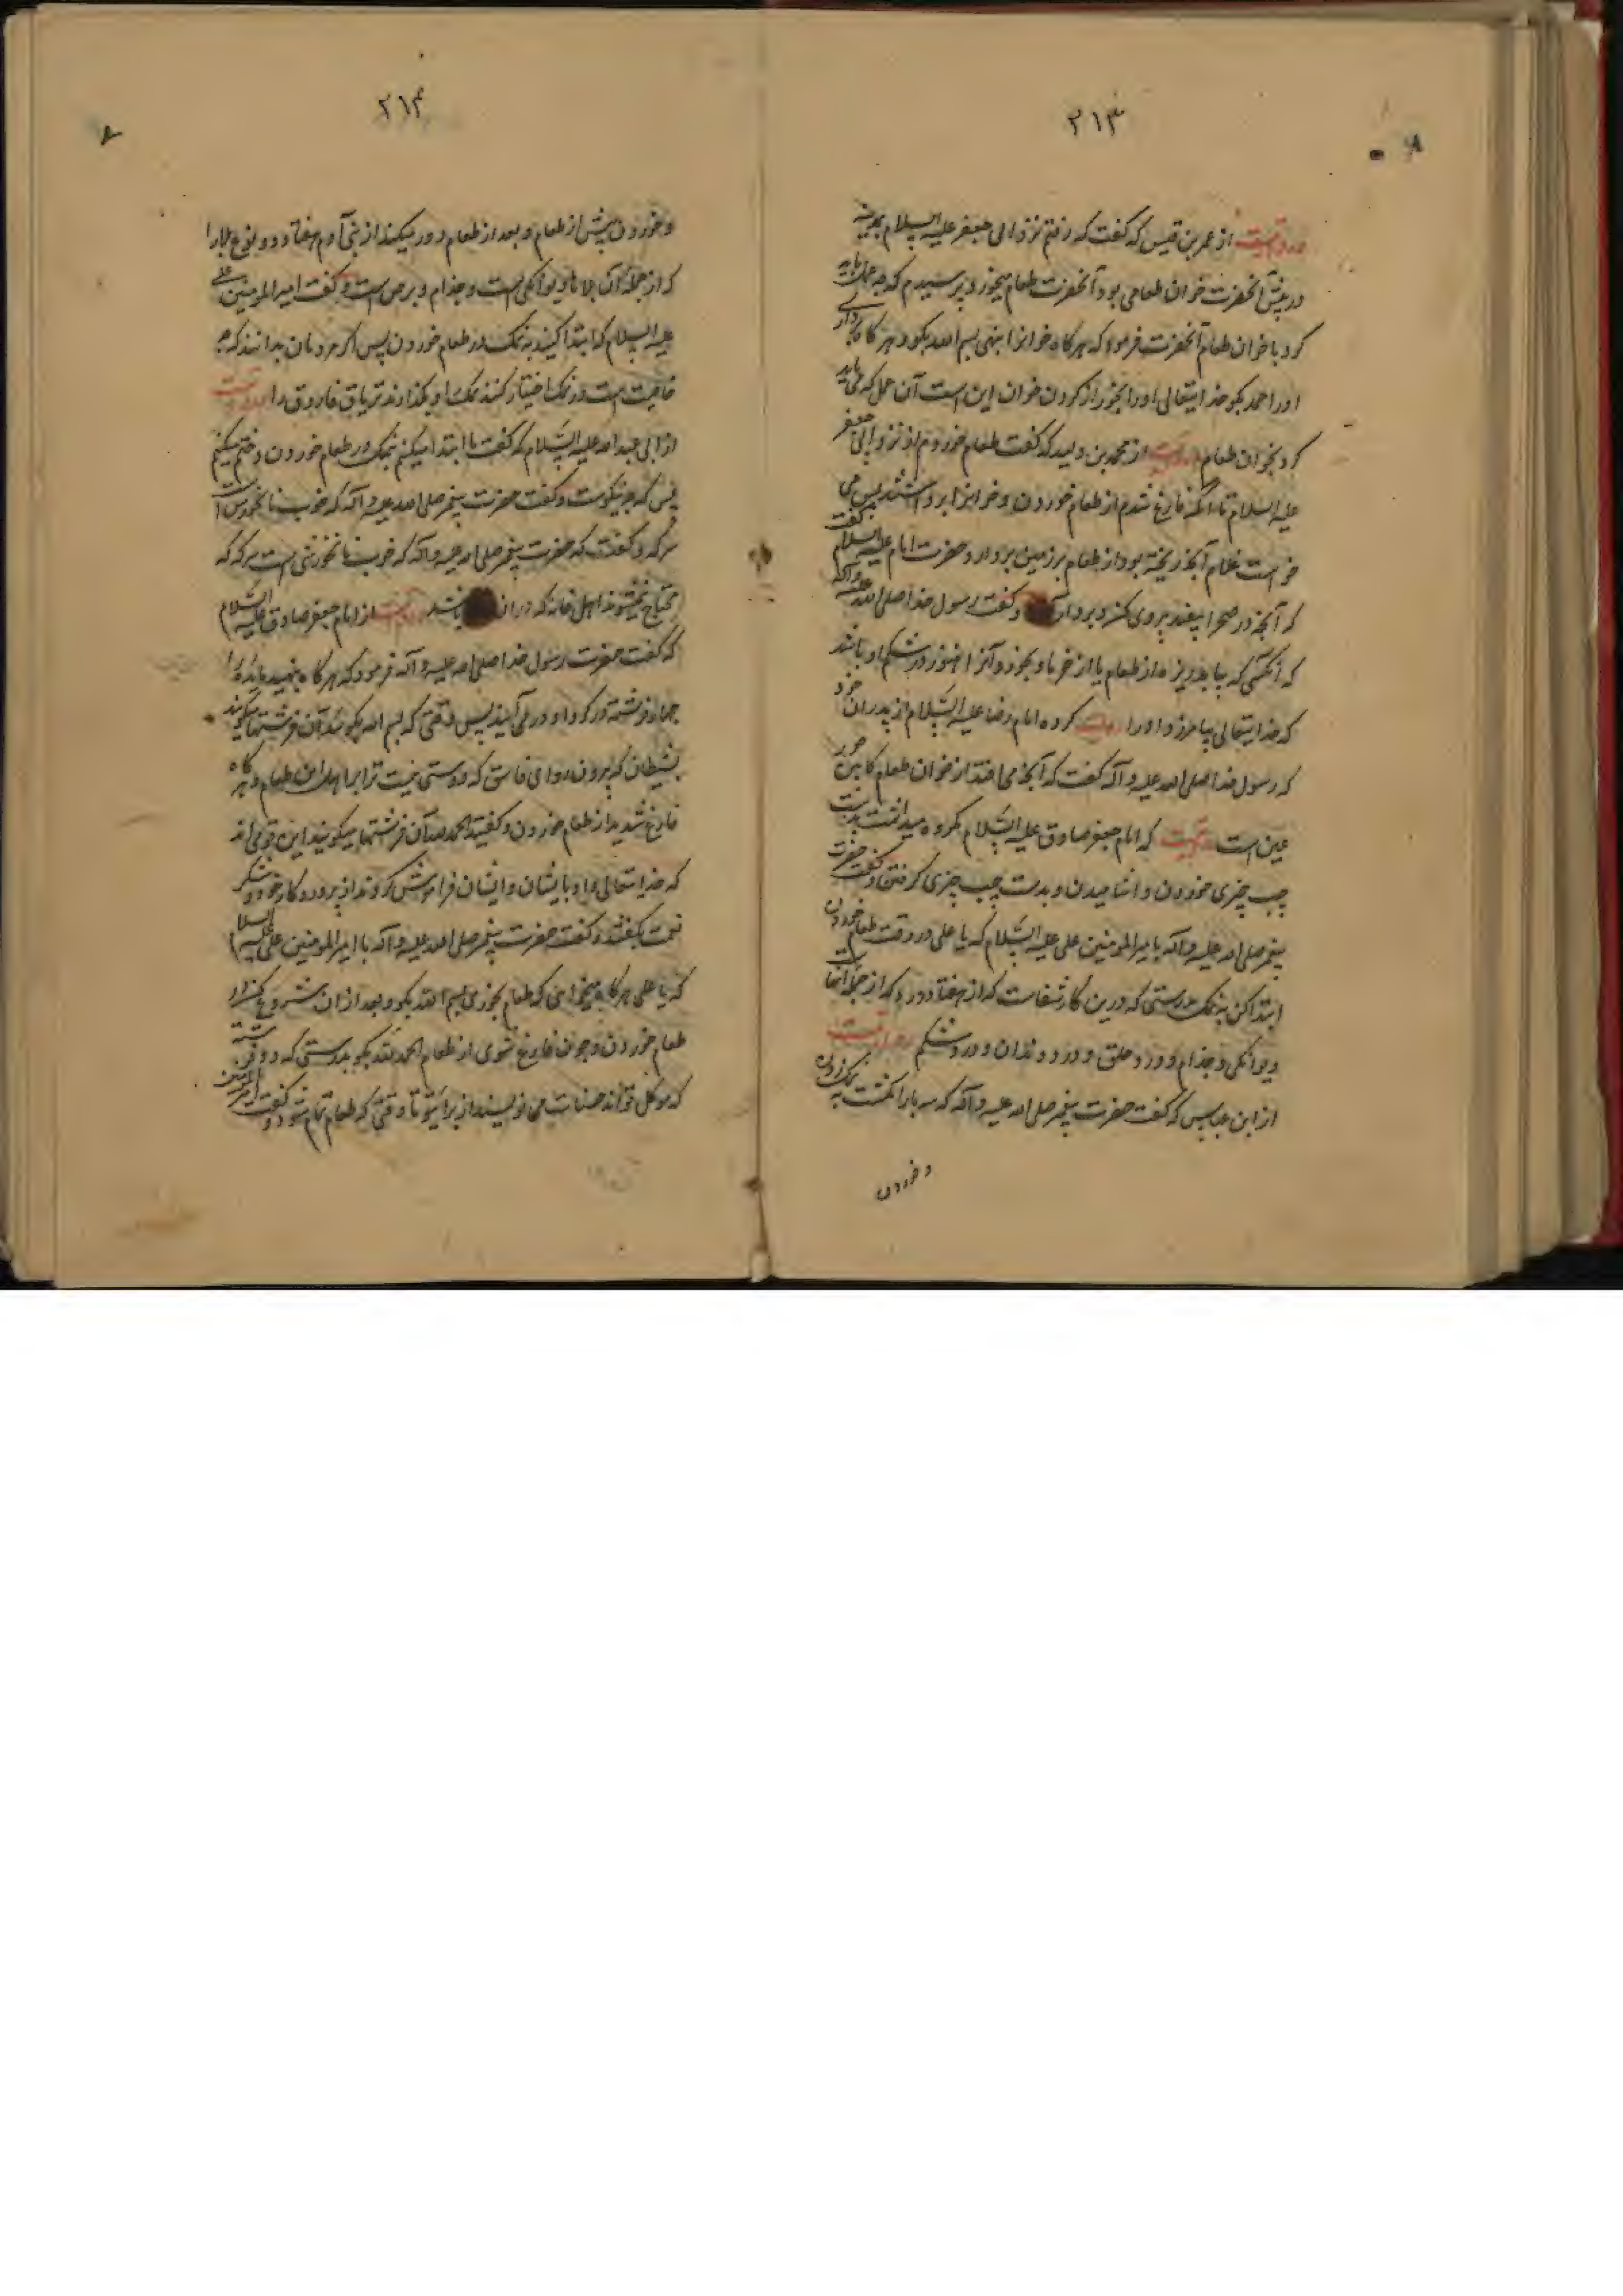 ۲۱۳
و روایتست از عمر بن قیس که گفت که رفتم نزد ابی جعفر علیه السلام بمدینه
در پیش آنحضرت خوان طعامی بود آنحضرت طعام میخورد پرسیدم که چه عمل باید
کرد با خوان طعام آنحضرت فرمود که هرکاه خوانرا بنهی بسم الله بکو و هرکاه برداری
اورا حمد بکو خدایتعالی اورا بخور از کردن خوان این است آن عمل که می باید
کرد بخوان طعام روایتست از محمد بن ولید که گفت طعام خوردم از نزد ابی جعفر
علیه السلام تا آنکه فارغ شدم از طعام خوردن و خوانرا برداشتند پس می
خواست غلام آنچه ریخته بود از طعام بر زمین بردارد حضرت امام علیه السلام گفت
که آنچه در صحرا بیفتد پروی مکن و بردار و گفت رسول خدا صلی الله علیه و آله
که آنکسی که بیابد ریزه از طعام یا از خرما و بخورد آنرا هنوز در شکم او باشد
که خدایتعالی بیامرزد اورا روایت کرده امام رضا علیه السلام از پدران خود
که رسول خدا صلی الله علیه و آله گفت که آنچه می افتد از خوان طعام کابین حور
عین است روایتست که امام جعفر صادق علیه السلام مکروه میدانست بدست
چپ چیزی خوردن و اشامیدن و بدست چپ چیزی کرفتن و گفت حضرت
پیغمبر صلی الله علیه و آله بامیر المومنین علی علیه السلام که یا علی در وقت طعام خوردن
ابتدا کن به نمک بدرستی که درین کار شفاست که از هفتاد درد که از جمله آنها
دیوانکی و جذام و درد حلق و درد دندان و درد شکم روایتست
از ابن عباس که گفت حضرت پیغمبر صلی الله علیه و آله که سه بار انکشت به نمک زدن
و خوردن
۲۱۴
و خوردن پیش از طعام و بعد از طعام دور میکند از بنی آدم هفتاد و دو نوع بلا را
که از جمله آن بلاها دیوانکی است و جذام و برص است و گفت امیر المومنین علی
علیه السلام که ابتدا کنید به نمک در طعام خوردن پس اکر مردمان بدانند که چه
خاصیت است در نمک اختیار کنند نمک را و بکذارند تریاق فاروق را روایتست
از ابی عبد الله علیه السلام که گفت ما ابتدا میکنیم بنمک در طعام خوردن و ختم میکنیم
بسرکه و گفت حضرت پیغمبر صلی الله علیه و آله که خوب نانخورشی است
سرکه و گفت که حضرت پیغمبر صلی الله علیه و آله که خوب نانخورشی است سرکه که
محتاج نمیشوند اهل خانه که دران باشد روایتست از امام جعفر صادق علیه السلام
که گفت حضرت رسول خدا صلی الله علیه و آله فرمود که هرکاه بنهید مایده را
چهار فرشته در کرد او در می آیند پس وقتی که بسم الله بکوئید آن فرشتها میکویند
بشیطان که برون رو ای فاسق که دوستی نیست ترا بر اهل این طعام و هرکاه
فارغ شدید از طعام خوردن و گفتید الحمد لله آن فرشتها میکویند این قومی اند
که خدایتعالی داد بایشان و ایشان فراموش نکردند از پروردکار خود و شکر
نعمت بکفتند و گفت حضرت پیغمبر صلی الله علیه و آله با امیر المومنین علی علیه السلام
که یا علی هرکاه میخواهی که طعام بخوری بسم الله بکو و بعد ازان شروع کن در
طعام خوردن و چون فارغ شوی از طعام الحمد لله بکو بدرستی که دو فرشته
که موکل تواند حسنات می نویسند از برای تو تا وقتی که طعام تمام شود و گفت امیر المومنین